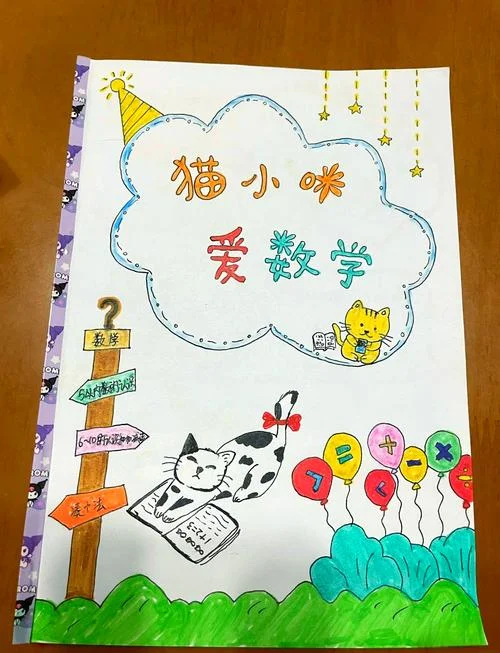 猫小咪
爱数学
?
数学
5以内数的认识
6~10的认识和加减法
凑十法
1+2=3
> = + - ×
< ✓ ÷
ROM